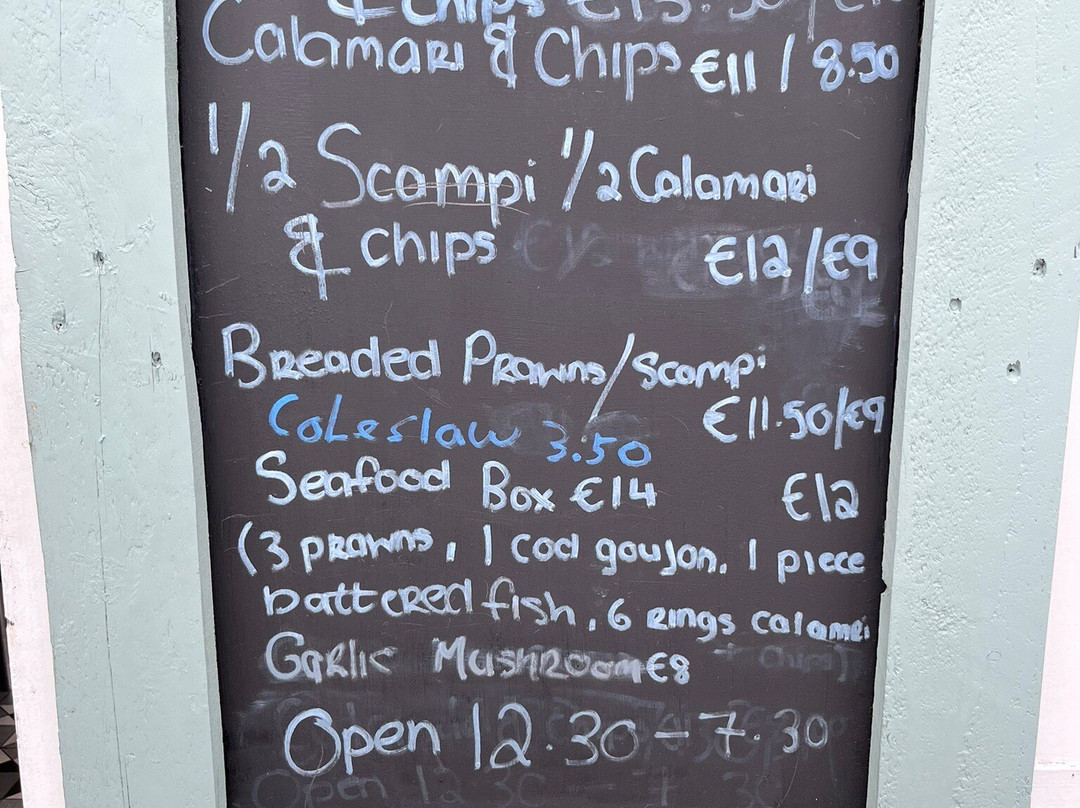 & Chips
Calamari & Chips €11 / 8.50
1/2 Scampi 1/2 Calamari
& chips €12/€9
Breaded Prawns/scampi
€11.50/€9
Coleslaw 3.50
Seafood Box €14 €12
(3 prawns, 1 cod goujon, 1 piece
battered fish, 6 rings calamri
+ chips)
Garlic Mushroom €8
Open 12.30 - 7.30
Open 12 30 - 7 30